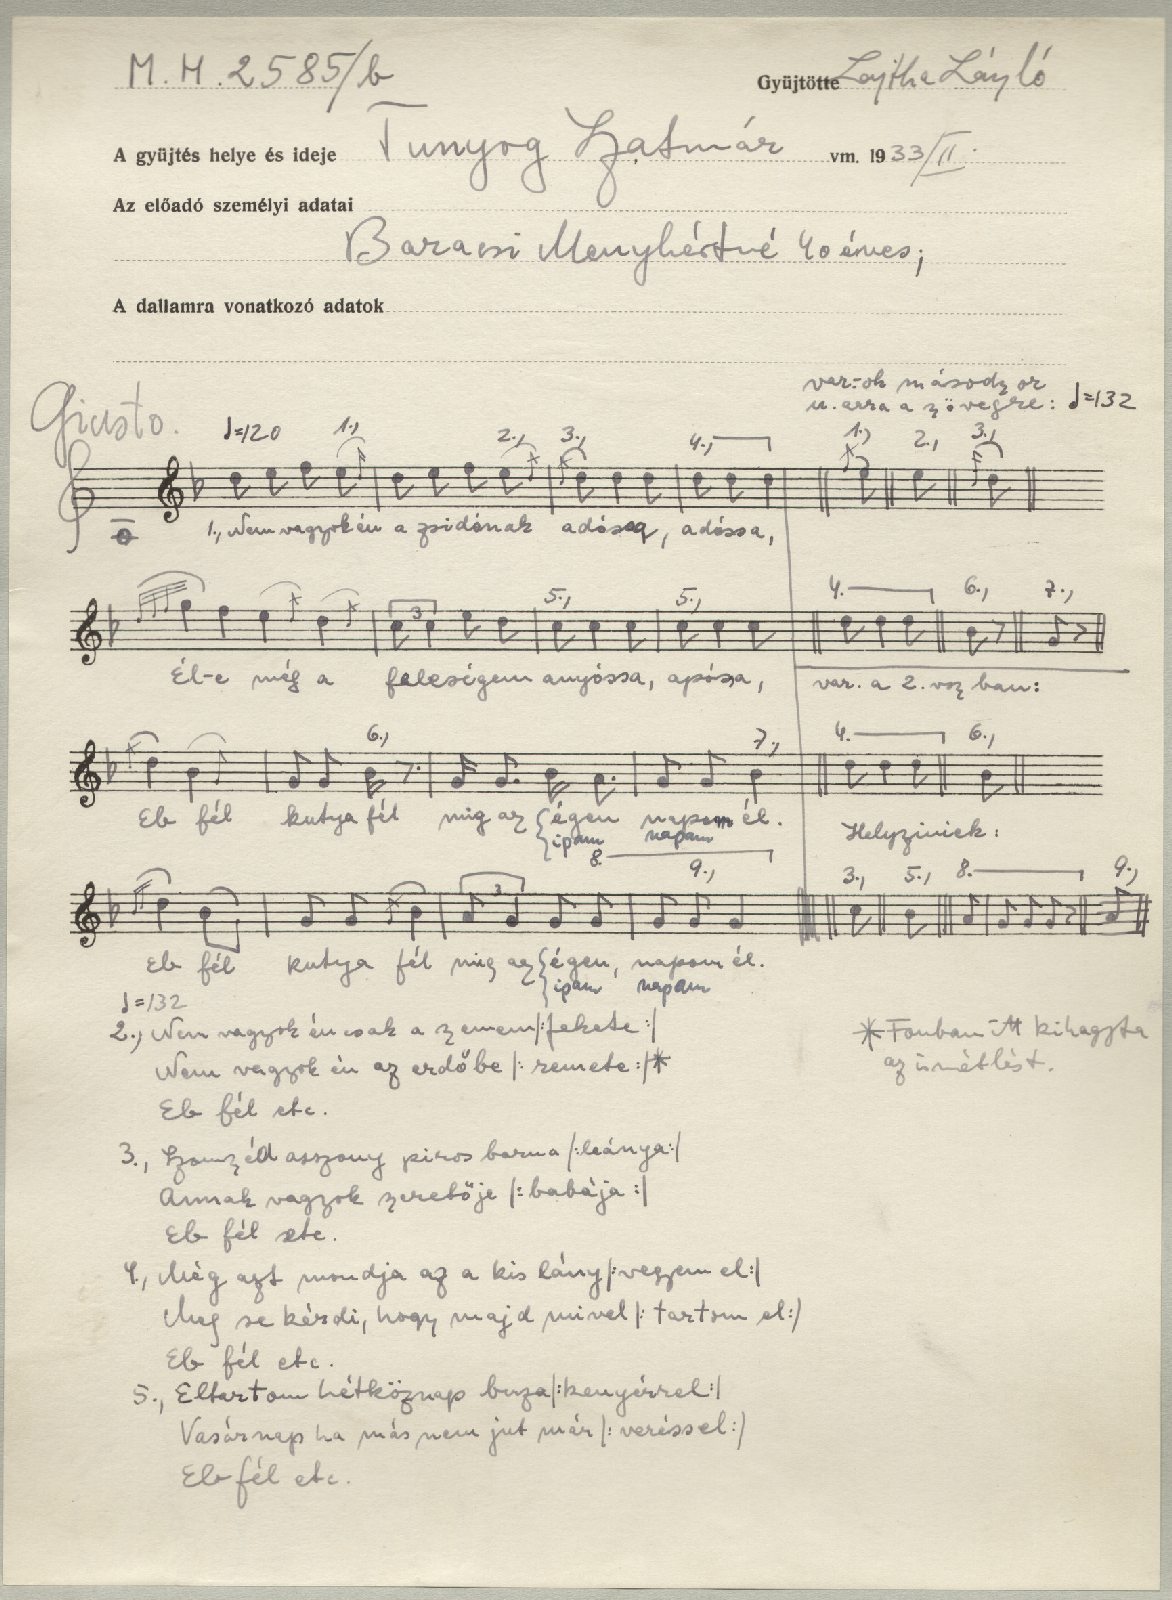 M. H. 2585/b
Gyüjtötte Lajtha László
A gyüjtés helye és ideje Tunyog Szatmár vm. 1933/II.
Az előadó személyi adatai
Baracsi Menyhértné 40 éves;
A dallamra vonatkozó adatok
var.-ok másodszor
u. arra a szövegre: ♩=132
Giusto. ♩=120 1., 2., 3., 4., 1., 2., 3.,
1., Nem vagyok én a zsidónak adóssa, adóssa,
5., 5., 4. 6., 7.,
Él-e még a feleségem anyóssa, apóssa,
var. a 2. vsz ban:
3
6., 7., 4. 6.,
Eb fél kutya fél mig az {égen napom él.
ipam napam
Helyziniek:
8. 9., 3., 5., 8. 9.,
3
Eb fél kutya fél mig az {égen, napom él.
ipam napam
♩=132
2., Nem vagyok én csak a szemem |: fekete :|
Nem vagyok én az erdőbe |: remete :| *
Eb fél etc.
* Fonban itt kihagyta
az ismétlést.
3., Szomszéd asszony piros barna |: leánya :|
Annak vagyok szeretője |: babája :|
Eb fél etc.
4., Még azt mondja az a kis lány |: vegyem el :|
Meg se kérdi, hogy majd mivel |: tartom el :|
Eb fél etc.
5., Eltartom hétköznap buza |: kenyérrel :|
Vasárnap ha más nem jut már |: veréssel :|
Eb fél etc.